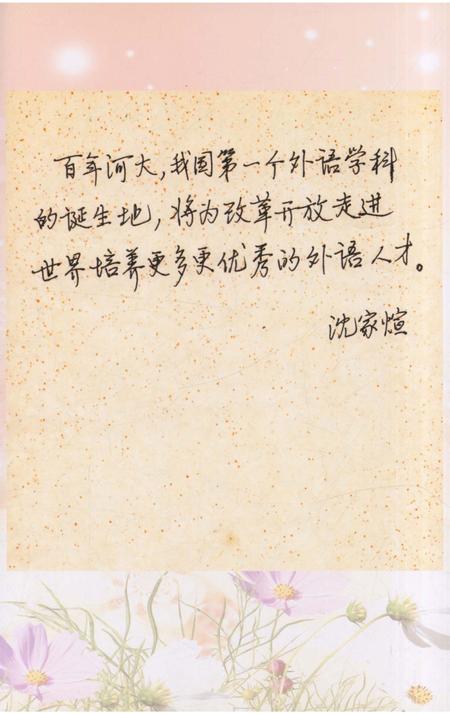 百年河大，我国第一个外语学科
的诞生地，将为改革开放走进
世界培养更多更优秀的外语人才。
沈家煊